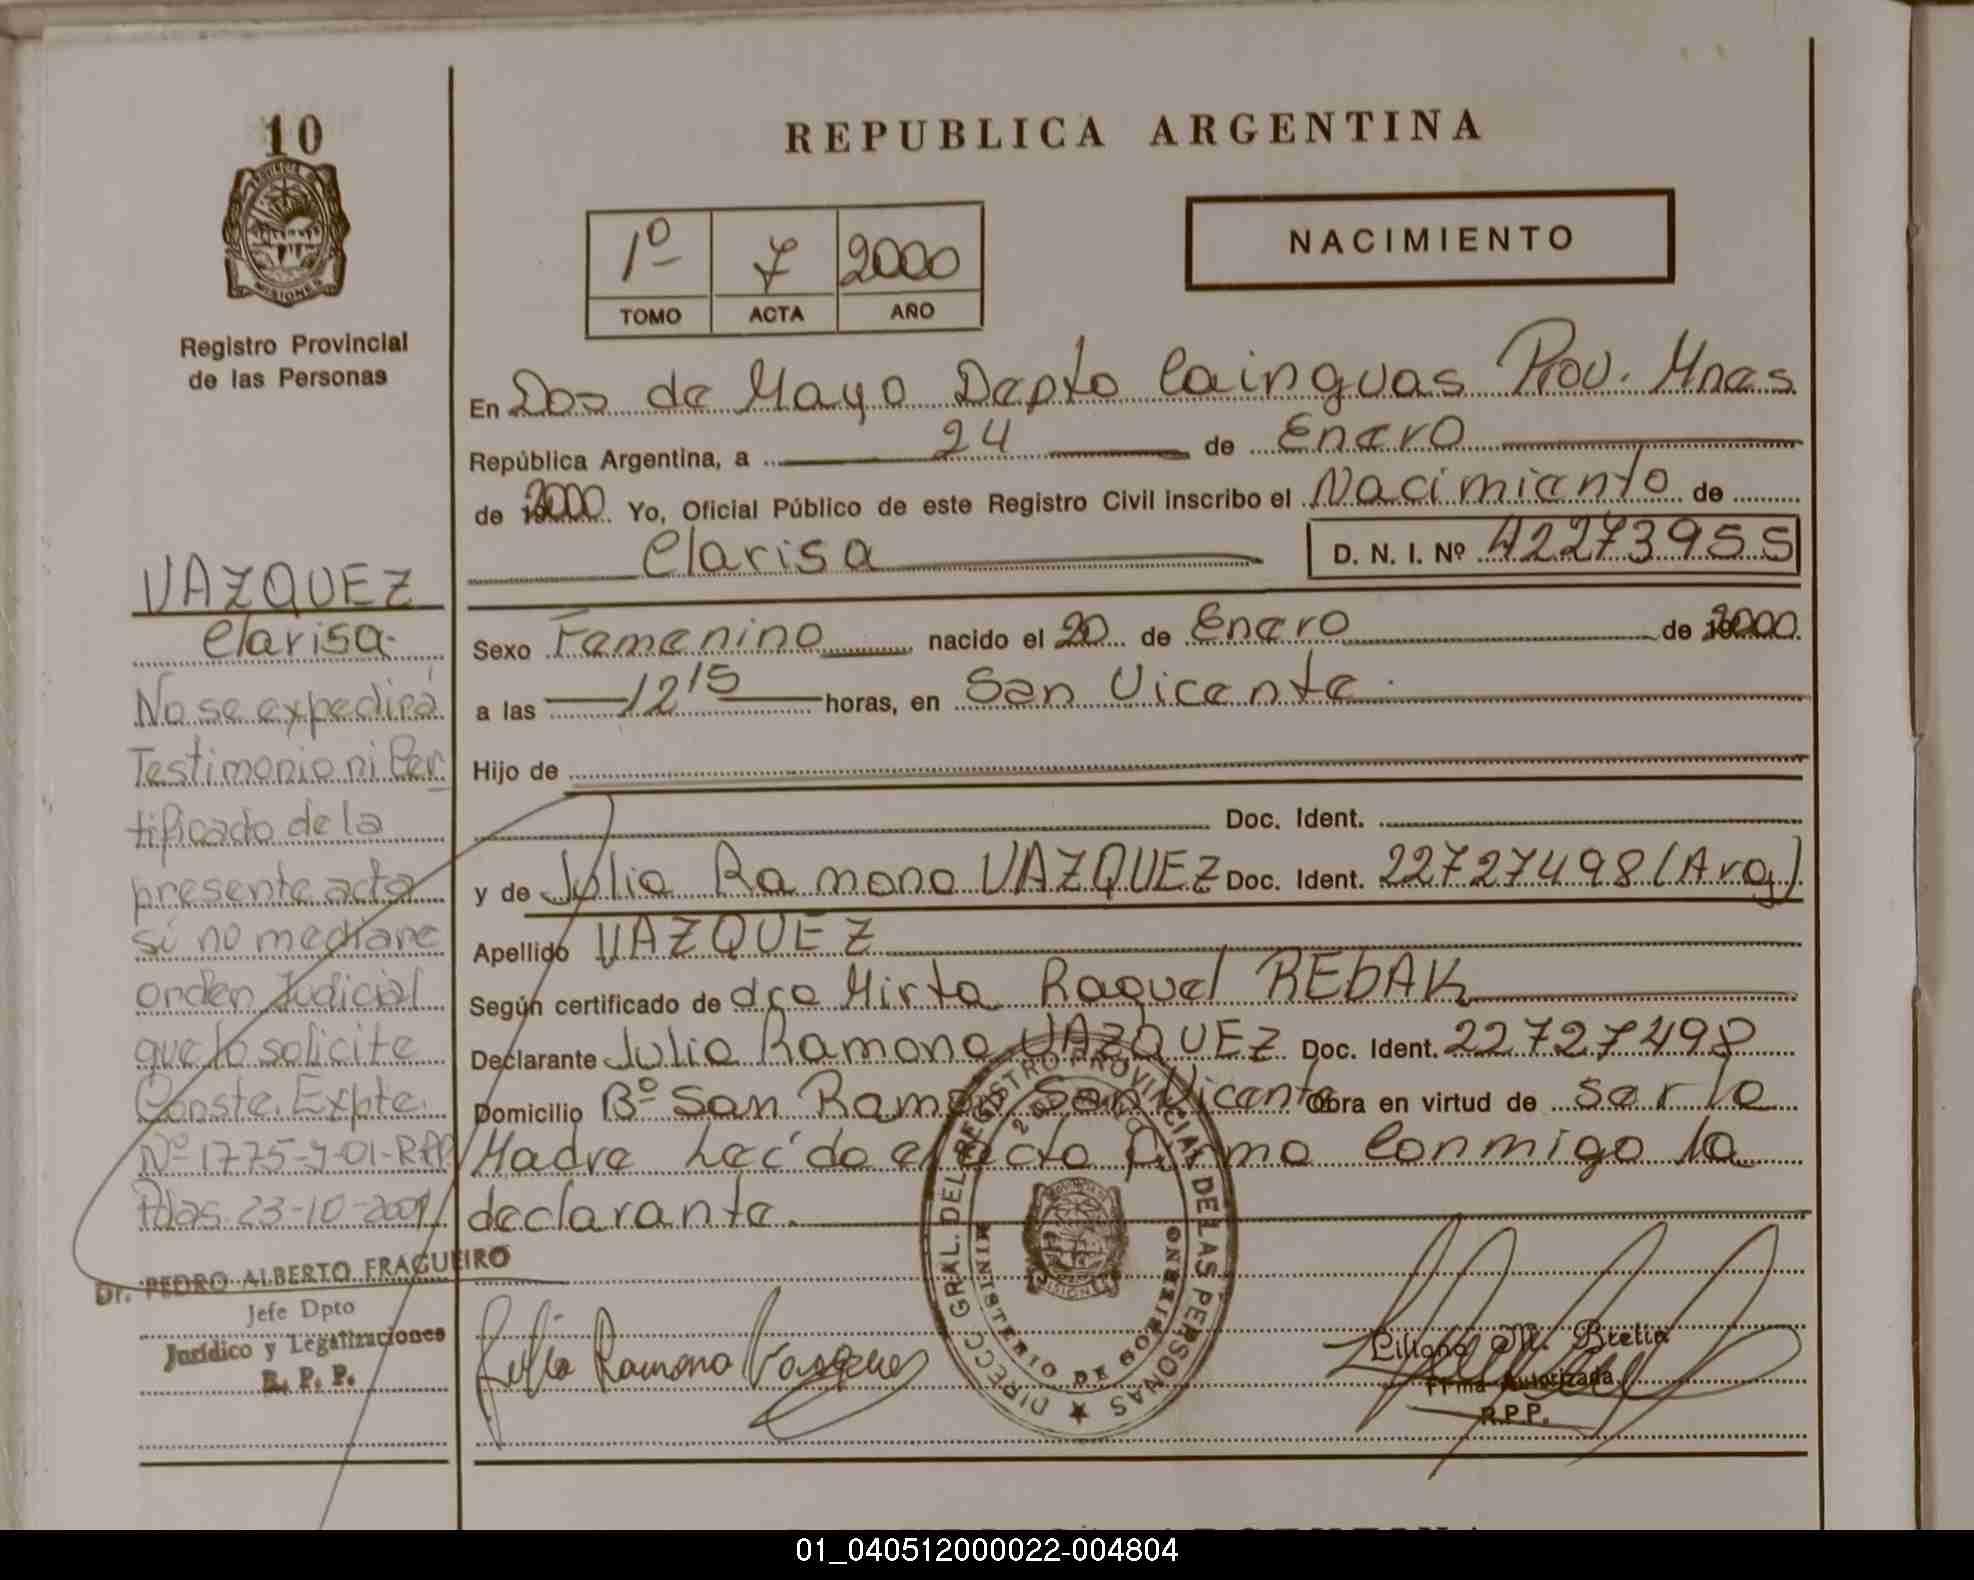 10
PROVINCIA DE
MISIONES
Registro Provincial
de las Personas
REPUBLICA ARGENTINA
1º 7 2000
TOMO ACTA AÑO
NACIMIENTO
En Dos de Mayo Depto Cainguas Prov. Mnes
República Argentina, a 24 de Enero
de 2000 Yo, Oficial Público de este Registro Civil inscribo el Nacimiento de
Clarisa D. N. I. Nº 42273955
Sexo Femenino nacido el 20 de Enero de 2000
a las 12 15 horas, en San Vicente.
Hijo de
Doc. Ident.
y de Julia Ramona VAZQUEZ Doc. Ident. 22727498 (Arg)
Apellido VAZQUEZ
Según certificado de dra Mirta Raquel REBAK
Declarante Julia Ramona VAZQUEZ Doc. Ident. 22727498
Domicilio Bº San Ramon San Vicente Obra en virtud de ser la
Madre Leída el acta firma Conmigo la
declarante.
VAZQUEZ
Clarisa.
No se expedirá
Testimonio ni Cer
tificado de la
presente acta
si no mediare
orden Judicial
que lo solicite
Conste. Expte.
Nº 1775-Y-01-RPP
Pdas 23-10-2001
Dr. PEDRO ALBERTO FRAGUEIRO
Jefe Dpto
Jurídico y Legalizaciones
R. P. P.
Julia Ramona Vasquez
DIRECC GRAL. DEL REGISTRO PROVINCIAL DE LAS PERSONAS
MINISTERIO DE GOBIERNO
Liliana M. Brelin
Firma Autorizada
R.P.P.
01_040512000022-004804